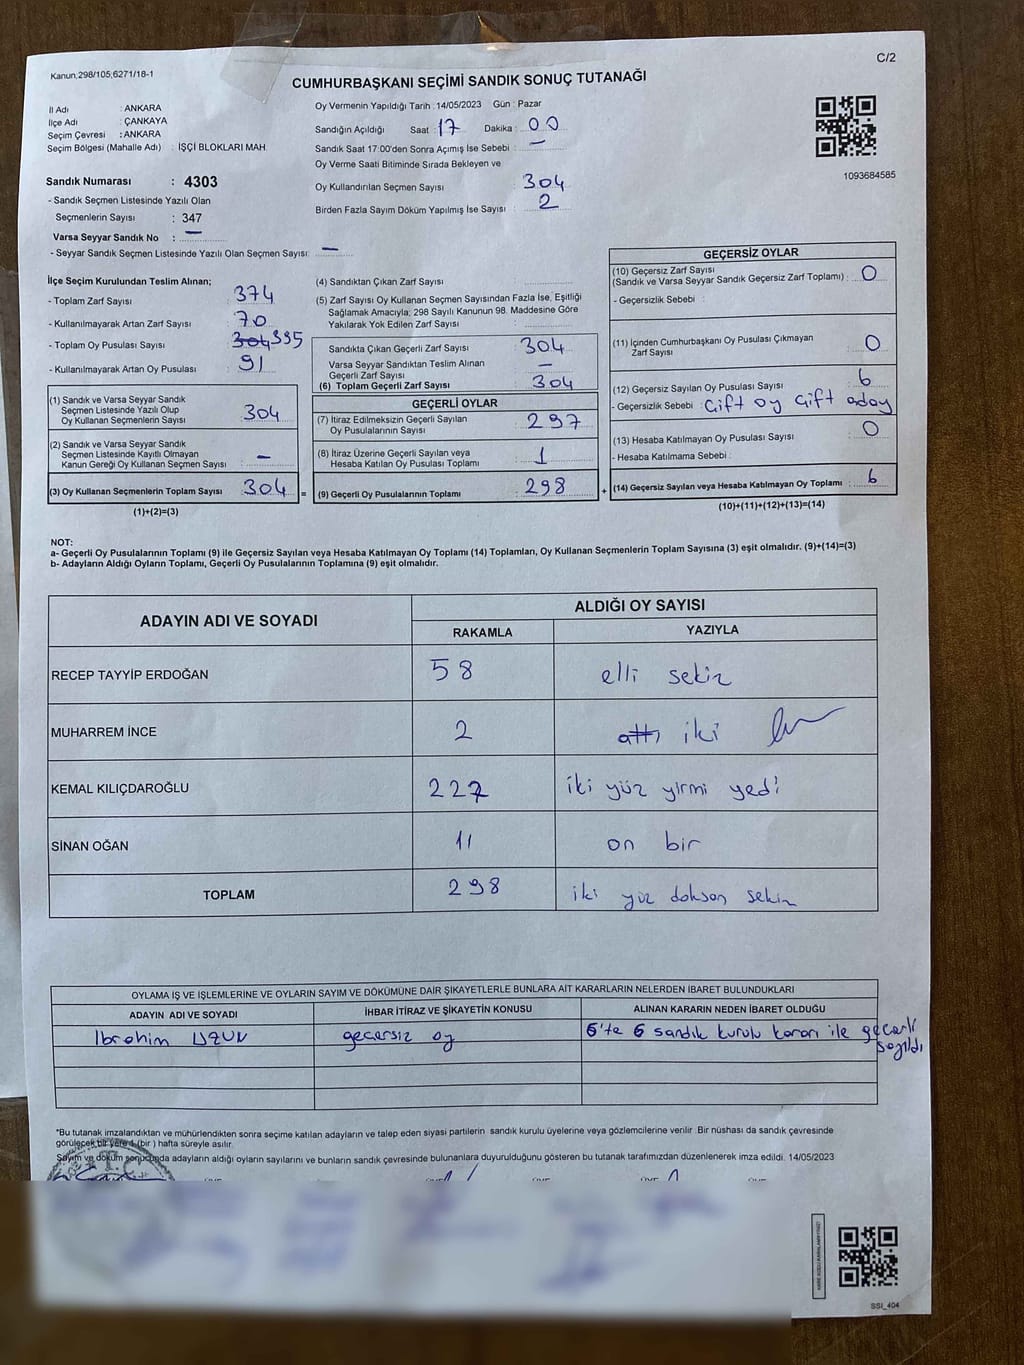 C/2
Kanun,298/105;6271/18-1
CUMHURBAŞKANI SEÇİMİ SANDIK SONUÇ TUTANAĞI
İl Adı : ANKARA
İlçe Adı : ÇANKAYA
Seçim Çevresi : ANKARA
Seçim Bölgesi (Mahalle Adı) : İŞÇİ BLOKLARI MAH.
Oy Vermenin Yapıldığı Tarih :14/05/2023 Gün : Pazar
Sandığın Açıldığı Saat : 17 Dakika : 00
Sandık Saat 17:00'den Sonra Açımış İse Sebebi : —
Oy Verme Saati Bitiminde Sırada Bekleyen ve
Oy Kullandırılan Seçmen Sayısı : 304
Birden Fazla Sayım Döküm Yapılmış İse Sayısı : 2
1093684585
Sandık Numarası : 4303
- Sandık Seçmen Listesinde Yazılı Olan
Seçmenlerin Sayısı : 347
Varsa Seyyar Sandık No : —
- Seyyar Sandık Seçmen Listesinde Yazılı Olan Seçmen Sayısı: —
İlçe Seçim Kurulundan Teslim Alınan;
- Toplam Zarf Sayısı : 374
- Kullanılmayarak Artan Zarf Sayısı : 70
- Toplam Oy Pusulası Sayısı : 304 395
- Kullanılmayarak Artan Oy Pusulası : 91
(1) Sandık ve Varsa Seyyar Sandık
Seçmen Listesinde Yazılı Olup
Oy Kullanan Seçmenlerin Sayısı : 304
(2) Sandık ve Varsa Seyyar Sandık
Seçmen Listesinde Kayıtlı Olmayan
Kanun Gereği Oy Kullanan Seçmen Sayısı : —
(3) Oy Kullanan Seçmenlerin Toplam Sayısı : 304
(1)+(2)=(3)
(4) Sandıktan Çıkan Zarf Sayısı :
(5) Zarf Sayısı Oy Kullanan Seçmen Sayısından Fazla İse, Eşitliği
Sağlamak Amacıyla; 298 Sayılı Kanunun 98. Maddesine Göre
Yakılarak Yok Edilen Zarf Sayısı :
Sandıkta Çıkan Geçerli Zarf Sayısı : 304
Varsa Seyyar Sandıktan Teslim Alınan
Geçerli Zarf Sayısı : —
(6) Toplam Geçerli Zarf Sayısı : 304
GEÇERLİ OYLAR
(7) İtiraz Edilmeksizin Geçerli Sayılan
Oy Pusulalarının Sayısı : 297
(8) İtiraz Üzerine Geçerli Sayılan veya
Hesaba Katılan Oy Pusulası Toplamı : 1
= (9) Geçerli Oy Pusulalarının Toplamı : 298
GEÇERSİZ OYLAR
(10) Geçersiz Zarf Sayısı
(Sandık ve Varsa Seyyar Sandık Geçersiz Zarf Toplamı) : 0
- Geçersizlik Sebebi :
(11) İçinden Cumhurbaşkanı Oy Pusulası Çıkmayan
Zarf Sayısı : 0
(12) Geçersiz Sayılan Oy Pusulası Sayısı : 6
- Geçersizlik Sebebi : Çift oy Çift aday
(13) Hesaba Katılmayan Oy Pusulası Sayısı : 0
- Hesaba Katılmama Sebebi :
+ (14) Geçersiz Sayılan veya Hesaba Katılmayan Oy Toplamı : 6
(10)+(11)+(12)+(13)=(14)
NOT:
a- Geçerli Oy Pusulalarının Toplamı (9) ile Geçersiz Sayılan veya Hesaba Katılmayan Oy Toplamı (14) Toplamları, Oy Kullanan Seçmenlerin Toplam Sayısına (3) eşit olmalıdır. (9)+(14)=(3)
b- Adayların Aldığı Oyların Toplamı, Geçerli Oy Pusulalarının Toplamına (9) eşit olmalıdır.
ADAYIN ADI VE SOYADI ALDIĞI OY SAYISI
RAKAMLA YAZIYLA
RECEP TAYYİP ERDOĞAN 58 elli sekiz
MUHARREM İNCE 2 altı iki
KEMAL KILIÇDAROĞLU 227 iki yüz yirmi yedi
SİNAN OĞAN 11 on bir
TOPLAM 298 iki yüz doksan sekiz
OYLAMA İŞ VE İŞLEMLERİNE VE OYLARIN SAYIM VE DÖKÜMÜNE DAİR ŞİKAYETLERLE BUNLARA AİT KARARLARIN NELERDEN İBARET BULUNDUKLARI
ADAYIN ADI VE SOYADI İHBAR İTİRAZ VE ŞİKAYETİN KONUSU ALINAN KARARIN NEDEN İBARET OLDUĞU
İbrahim UZUN geçersiz oy 6'ta 6 sandık kurulu kararı ile geçerli
sayıldı
*Bu tutanak imzalandıktan ve mühürlendikten sonra seçime katılan adayların ve talep eden siyasi partilerin sandık kurulu üyelerine veya gözlemcilerine verilir .Bir nüshası da sandık çevresinde
görülecek bir yere 1 (bir ) hafta süreyle asılır.
Sayım ve döküm sonucunda adayların aldığı oyların sayılarını ve bunların sandık çevresinde bulunanlara duyurulduğunu gösteren bu tutanak tarafımızdan düzenlenerek imza edildi. 14/05/2023
SSI_404